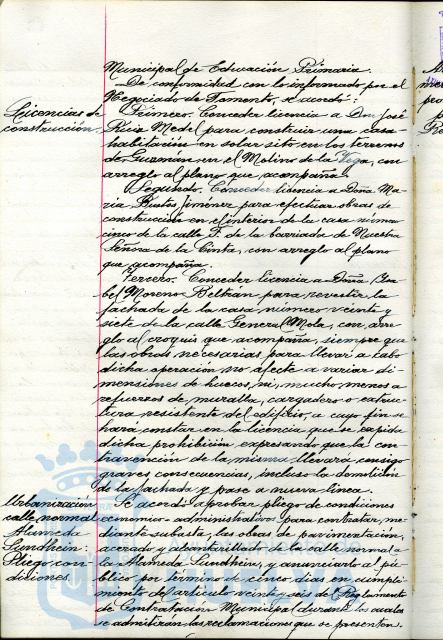 Municipal de Educación Primaria.
De conformidad con lo informado por el
Negociado de Fomento, se acordó:
Licencias de
construcción.
Primero. Conceder licencia a Don José
Ruiz Medel para construir una casa-
habitación en solar sito en los terrenos
de Guzmán en el Molino de la Vega, con
arreglo al plano que acompaña.
Segundo. Conceder licencia a Doña Ma-
ria Bustos Jiménez para efectuar obras de
construcción en el interior de la casa número
cinco de la calle F. de la barriada de Nuestra
Señora de la Cinta, con arreglo al plano
que acompaña.
Tercero. Conceder licencia a Doña Isa-
bel Moreno Beltrán para revestir la
fachada de la casa número veinte y
siete de la calle General Mola, con arre-
glo al croquis que acompaña, siempre que
las obras necesarias para llevar a cabo
dicha operación no afecte a variar di-
mensiones de huecos, ni, mucho, menos a
refuerzos de muralla, cargadero o estruc-
tura resistente del edificio, a cuyo fin se
hará constar en la licencia que se expida
dicha prohibición expresando que la con-
travención de la misma llevará consigo
graves consecuencias, incluso la demolición
de la fachada y pase a nueva línea.
Urbanización
calle normal
Alameda
Sundhein:
Pliego con-
diciones.
Se acordó aprobar pliego de condiciones
económico-administrativas para contratar, me-
diante subasta, las obras de pavimentación,
acerado y alcantarillado de la calle normal a
la Alameda Sundhein, y anunciarlo al pú-
blico por término de cinco días en cumpli-
miento del artículo veinte y seis del Reglamento
de Contratación Municipal durante los cuales
se admitirán las reclamaciones que se presenten.